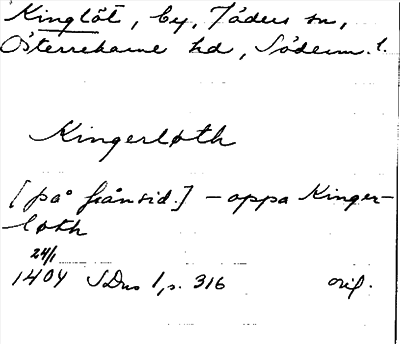 Kinglöt, by, Jäders sn,
Österrekarne hd, Söderm. l.
Kingerløth
[på frånsid.] - oppa Kinger-
løth
24/1
1404 SDns 1, s. 316 orig.